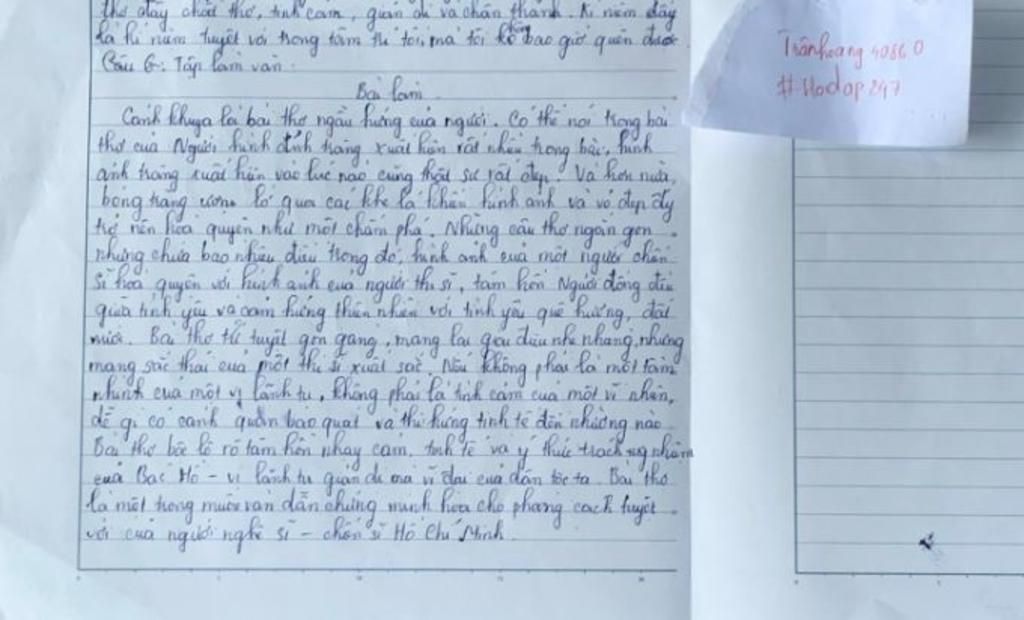 thơ đầy chất thơ, tình cảm, giản dị và chân thành. Kỉ niệm đấy
là kỉ niệm tuyệt vời trong tâm trí tôi, mà tôi không bao giờ quên được
Câu 6: Tập làm văn.
Bài làm
Cảnh khuya là bài thơ ngẫu hứng của người. Có thể nói trong bài
thơ của Người hình ảnh trăng xuất hiện rất nhiều trong bài, hình
ảnh trăng xuất hiện vào lúc nào cũng thật sự rất đẹp. Và hơn nữa,
bóng trăng vương ló qua các khe lá khiến hình ảnh và vẻ đẹp ấy
trở nên hòa quyện như một chấm phá. Những câu thơ ngắn gọn
nhưng chứa bao nhiêu điều trong đó, hình ảnh của một người chiến
sĩ hòa quyện với hình ảnh của người thi sĩ, tâm hồn Người đồng điệu
giữa tình yêu và cảm hứng thiên nhiên với tình yêu quê hương, đất
nước. Bài thơ tứ tuyệt gọn gàng, mang lại giai điệu nhẹ nhàng, nhưng
mang sắc thái của một thi sĩ xuất sắc. Nếu không phải là một tầm
nhìn của một vị lãnh tụ, không phải là tình cảm của một vĩ nhân,
dễ gì có cảnh quan bao quát và thi hứng tinh tế đến nhường nào.
Bài thơ bộc lộ rõ tâm hồn nhạy cảm, tinh tế và ý thức trách nhiệm
của Bác Hồ - vị lãnh tụ giản dị mà vĩ đại của dân tộc ta. Bài thơ
là một trong muôn vàn dẫn chứng minh họa cho phong cách tuyệt
vời của người nghệ sĩ - chiến sĩ Hồ Chí Minh.
Trânhoang 4086 0
#Hodap247